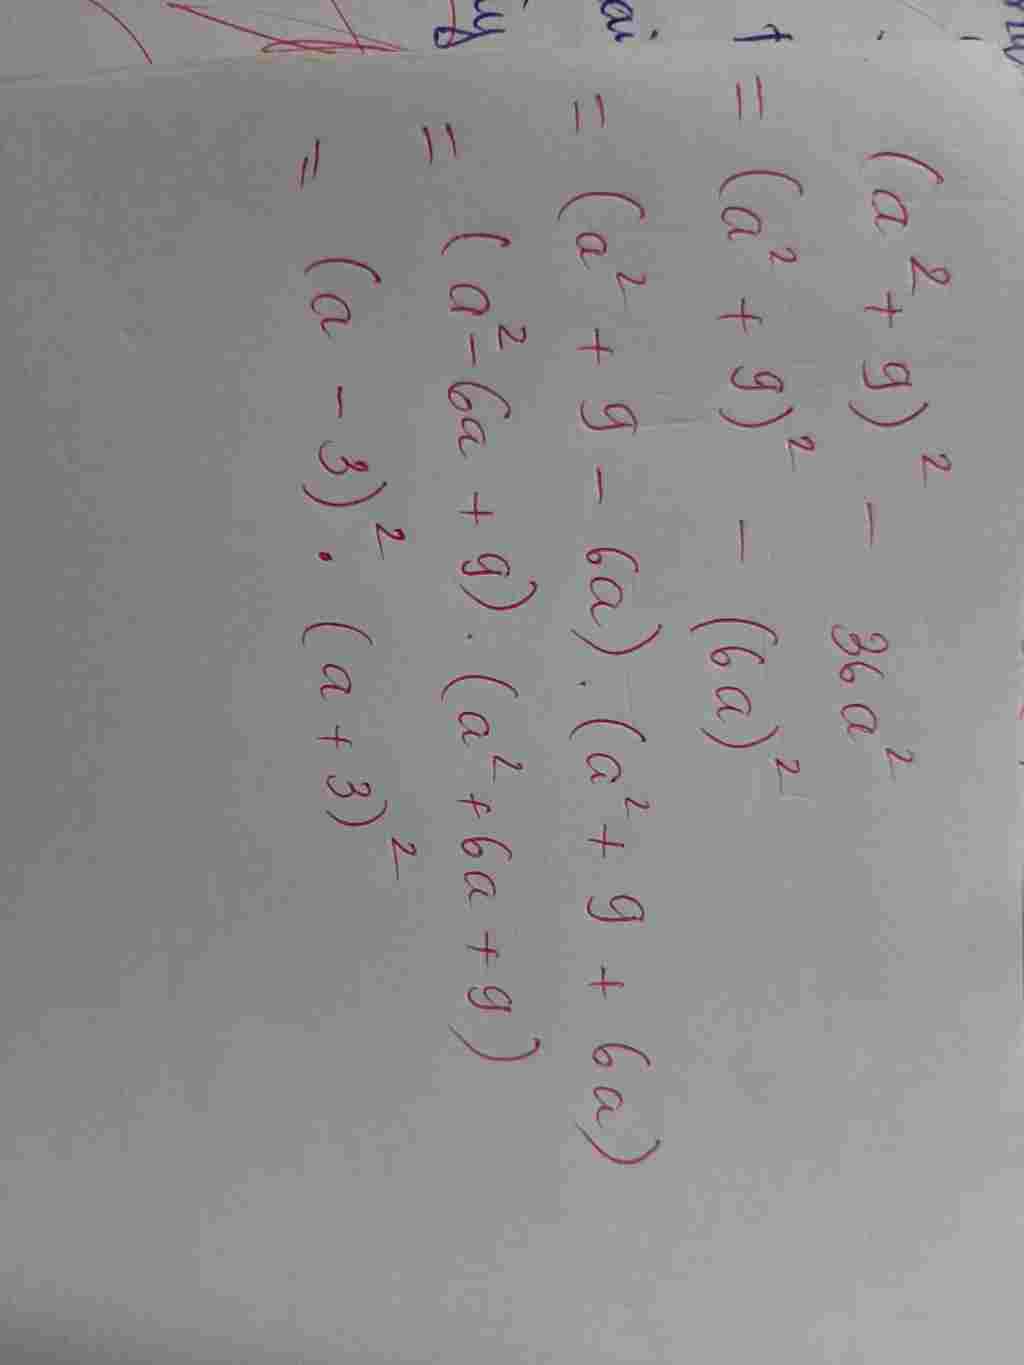 (a² + 9)² - 36a²
= (a² + 9)² - (6a)²
= (a² + 9 - 6a) . (a² + 9 + 6a)
= (a² - 6a + 9) . (a² + 6a + 9)
= (a - 3)² . (a + 3)²